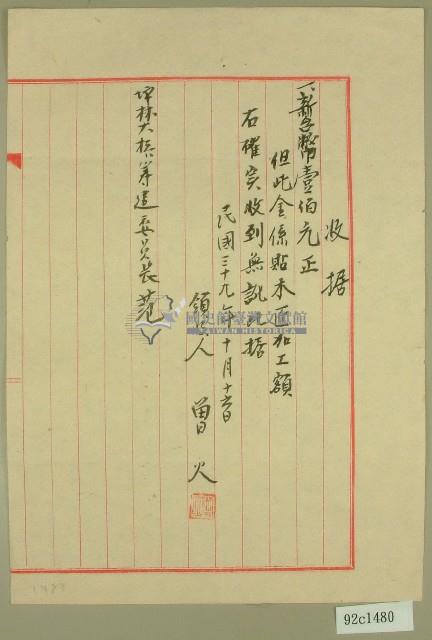 收据
一、新台幣壹佰元正
但此金係貼木工加工額
右確实收到無訛此据
民國三十九年十月十六日
領收人 曾火
坪林大橋籌建委員長范
國史館臺灣文獻館
TAIWAN HISTORICA
1480
92c1480